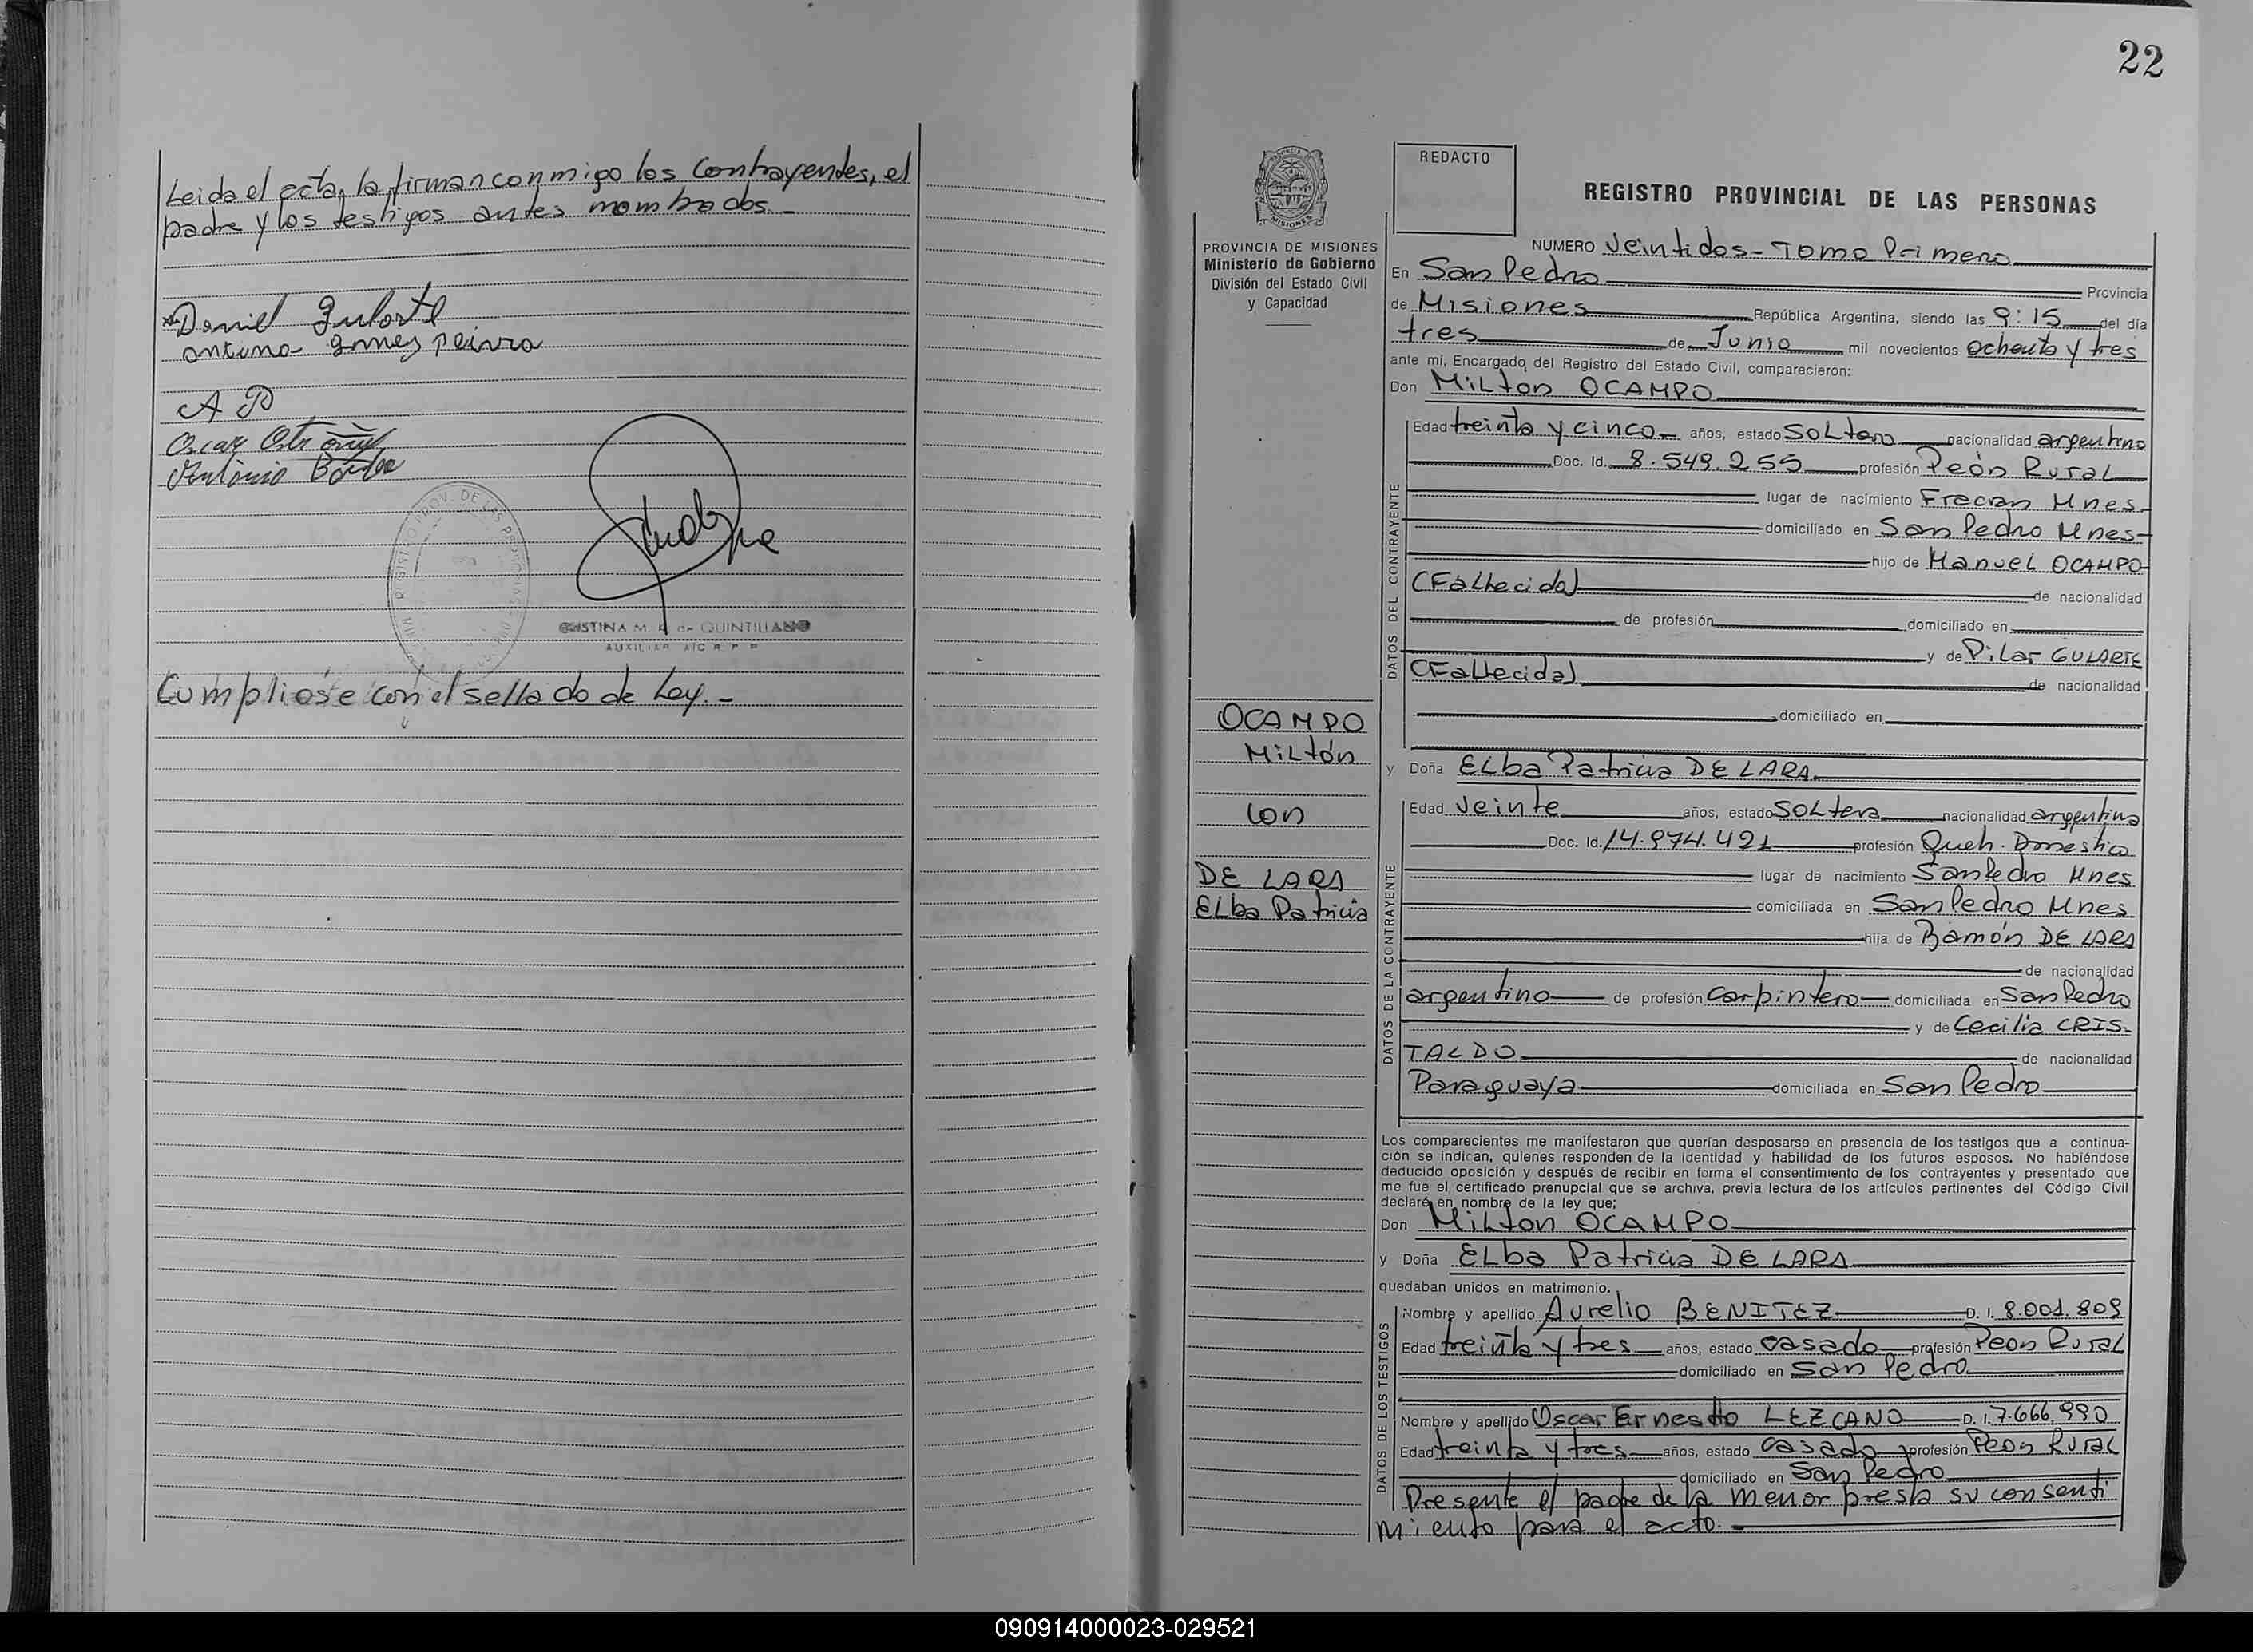 Leida el acta, la firman conmigo los contrayentes, el
padre y los testigos antes nombrados.-
Daniel Gularte
antonio gomes peivra
A D
Oscar
Antonio
CRISTINA M. de QUINTILIANO
AUXILIAR A/C R. P. P.
Cumplióse con el sellado de Ley.-
22
REDACTO
REGISTRO PROVINCIAL DE LAS PERSONAS
PROVINCIA DE MISIONES
Ministerio de Gobierno
División del Estado Civil
y Capacidad
NUMERO Veintidos - Tomo Primero
En San Pedro Provincia
de Misiones República Argentina, siendo las 9:15 del día
tres de Junio mil novecientos ochenta y tres
ante mí, Encargado del Registro del Estado Civil, comparecieron:
Don Milton OCAMPO
DATOS DEL CONTRAYENTE
Edad treinta y cinco años, estado Soltero nacionalidad argentino
Doc. Id. 8.549.255 profesión Peón Rural
lugar de nacimiento Fracran Mnes.
domiciliado en San Pedro Mnes-
hijo de Manuel OCAMPO
(Fallecido) de nacionalidad
de profesión domiciliado en
y de Pilar GULARTE
(Fallecida) de nacionalidad
domiciliado en
OCAMPO
Miltón
con
DE LARA
Elba Patricia
y Doña Elba Patricia DE LARA
DATOS DE LA CONTRAYENTE
Edad Veinte años, estado Soltera nacionalidad argentina
Doc. Id. 14.974.421 profesión Queh. Domestico
lugar de nacimiento San Pedro Mnes
domiciliada en San Pedro Mnes
hija de Ramón DE LARA
de nacionalidad
argentino de profesión Carpintero domiciliada en San Pedro
y de Cecilia CRIS-
TALDO de nacionalidad
Paraguaya domiciliada en San Pedro
Los comparecientes me manifestaron que querían desposarse en presencia de los testigos que a continua-
ción se indican, quienes responden de la identidad y habilidad de los futuros esposos. No habiéndose
deducido oposición y después de recibir en forma el consentimiento de los contrayentes y presentado que
me fue el certificado prenupcial que se archiva, previa lectura de los artículos pertinentes del Código Civil
declaré en nombre de la ley que:
Don Milton OCAMPO
y Doña Elba Patricia DE LARA
quedaban unidos en matrimonio.
DATOS DE LOS TESTIGOS
Nombre y apellido Aurelio BENITEZ D. I. 8.001.809
Edad treinta y tres años, estado casado profesión Peon Rural
domiciliado en San Pedro
Nombre y apellido Oscar Ernesto LEZCANO D. I. 7.666.990
Edad treinta y tres años, estado casado profesión Peon Rural
domiciliado en San Pedro
Presente el padre de la menor presta su consenti
miento para el acto.-
090914000023-029521